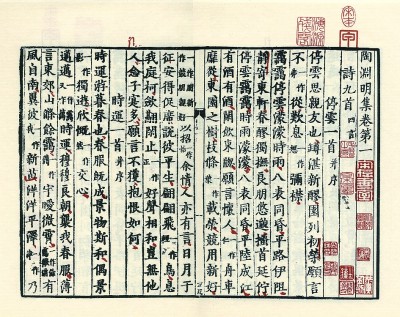 陶淵明集卷第一
詩九首 四言
停雲一首 并序
停雲思親友也罇湛新醪園列初榮願言
不從歎息彌襟
靄靄停雲濛濛時雨八表同昏平路伊阻
靜寄東軒春醪獨撫良朋悠邈搔首延佇
停雲靄靄時雨濛濛八表同昏平陸成江
有酒有酒閒飲東牕願言懷人舟車
靡從東園之樹枝條載榮競用新好
以招余情人亦有言日月于
征安得促席說彼平生翩翩飛鳥息
我庭柯斂翮閒止好聲相和豈無他
人念子寔多願言不獲抱恨如何
時運一首 并序
時運游暮春也春服既成景物斯和偶景
一作影獨遊欣慨交心
邁邁時運穆穆良朝襲我春服薄
言東郊山滌餘靄宇曖微霄有
風自南翼彼新苗洋洋平澤一作乃